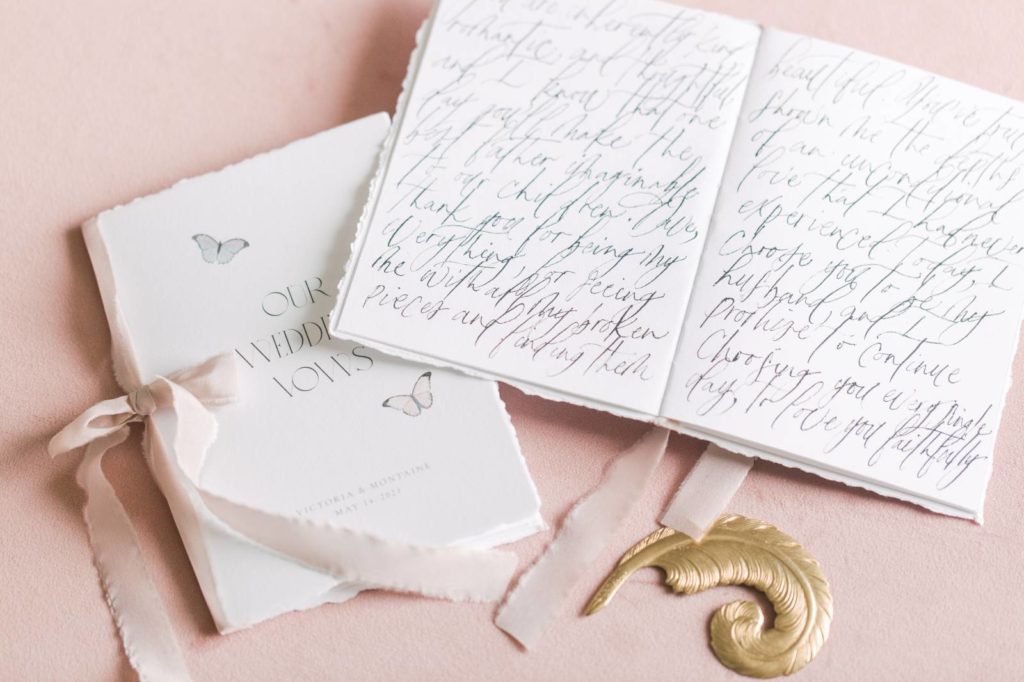 OUR
WEDDIN
VOWS
VICTORIA & MONTAINE
MAY 14, 2021
are inherently kind,
romantic, and thoughtful
and I know that one
day you'll make the
best father imaginable
to our children.
Thank you for being my
everything, for seeing
me with all my broken
pieces and finding them
beautiful. You've truly
shown me the depths
of an unconditional
love that I had never
experienced. Today, I
Choose you to be my
husband, and I
Promise to continue
Choosing you every single
day, to love you faithfully